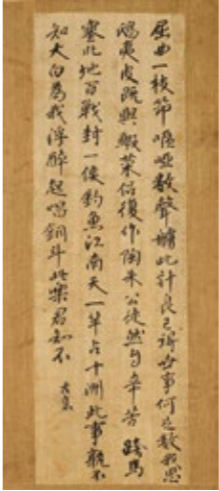 屈曲一枝節嘔啞數聲觱此計良已得世事何足數我思
鴟夷皮既與蝦菜侶復作陶朱公徒然自辛苦 踐馬
塞北地百戰封一侯釣魚江南天一竿占十洲此事孰不
知大白為我浮醉起唱銅斗此樂君知不